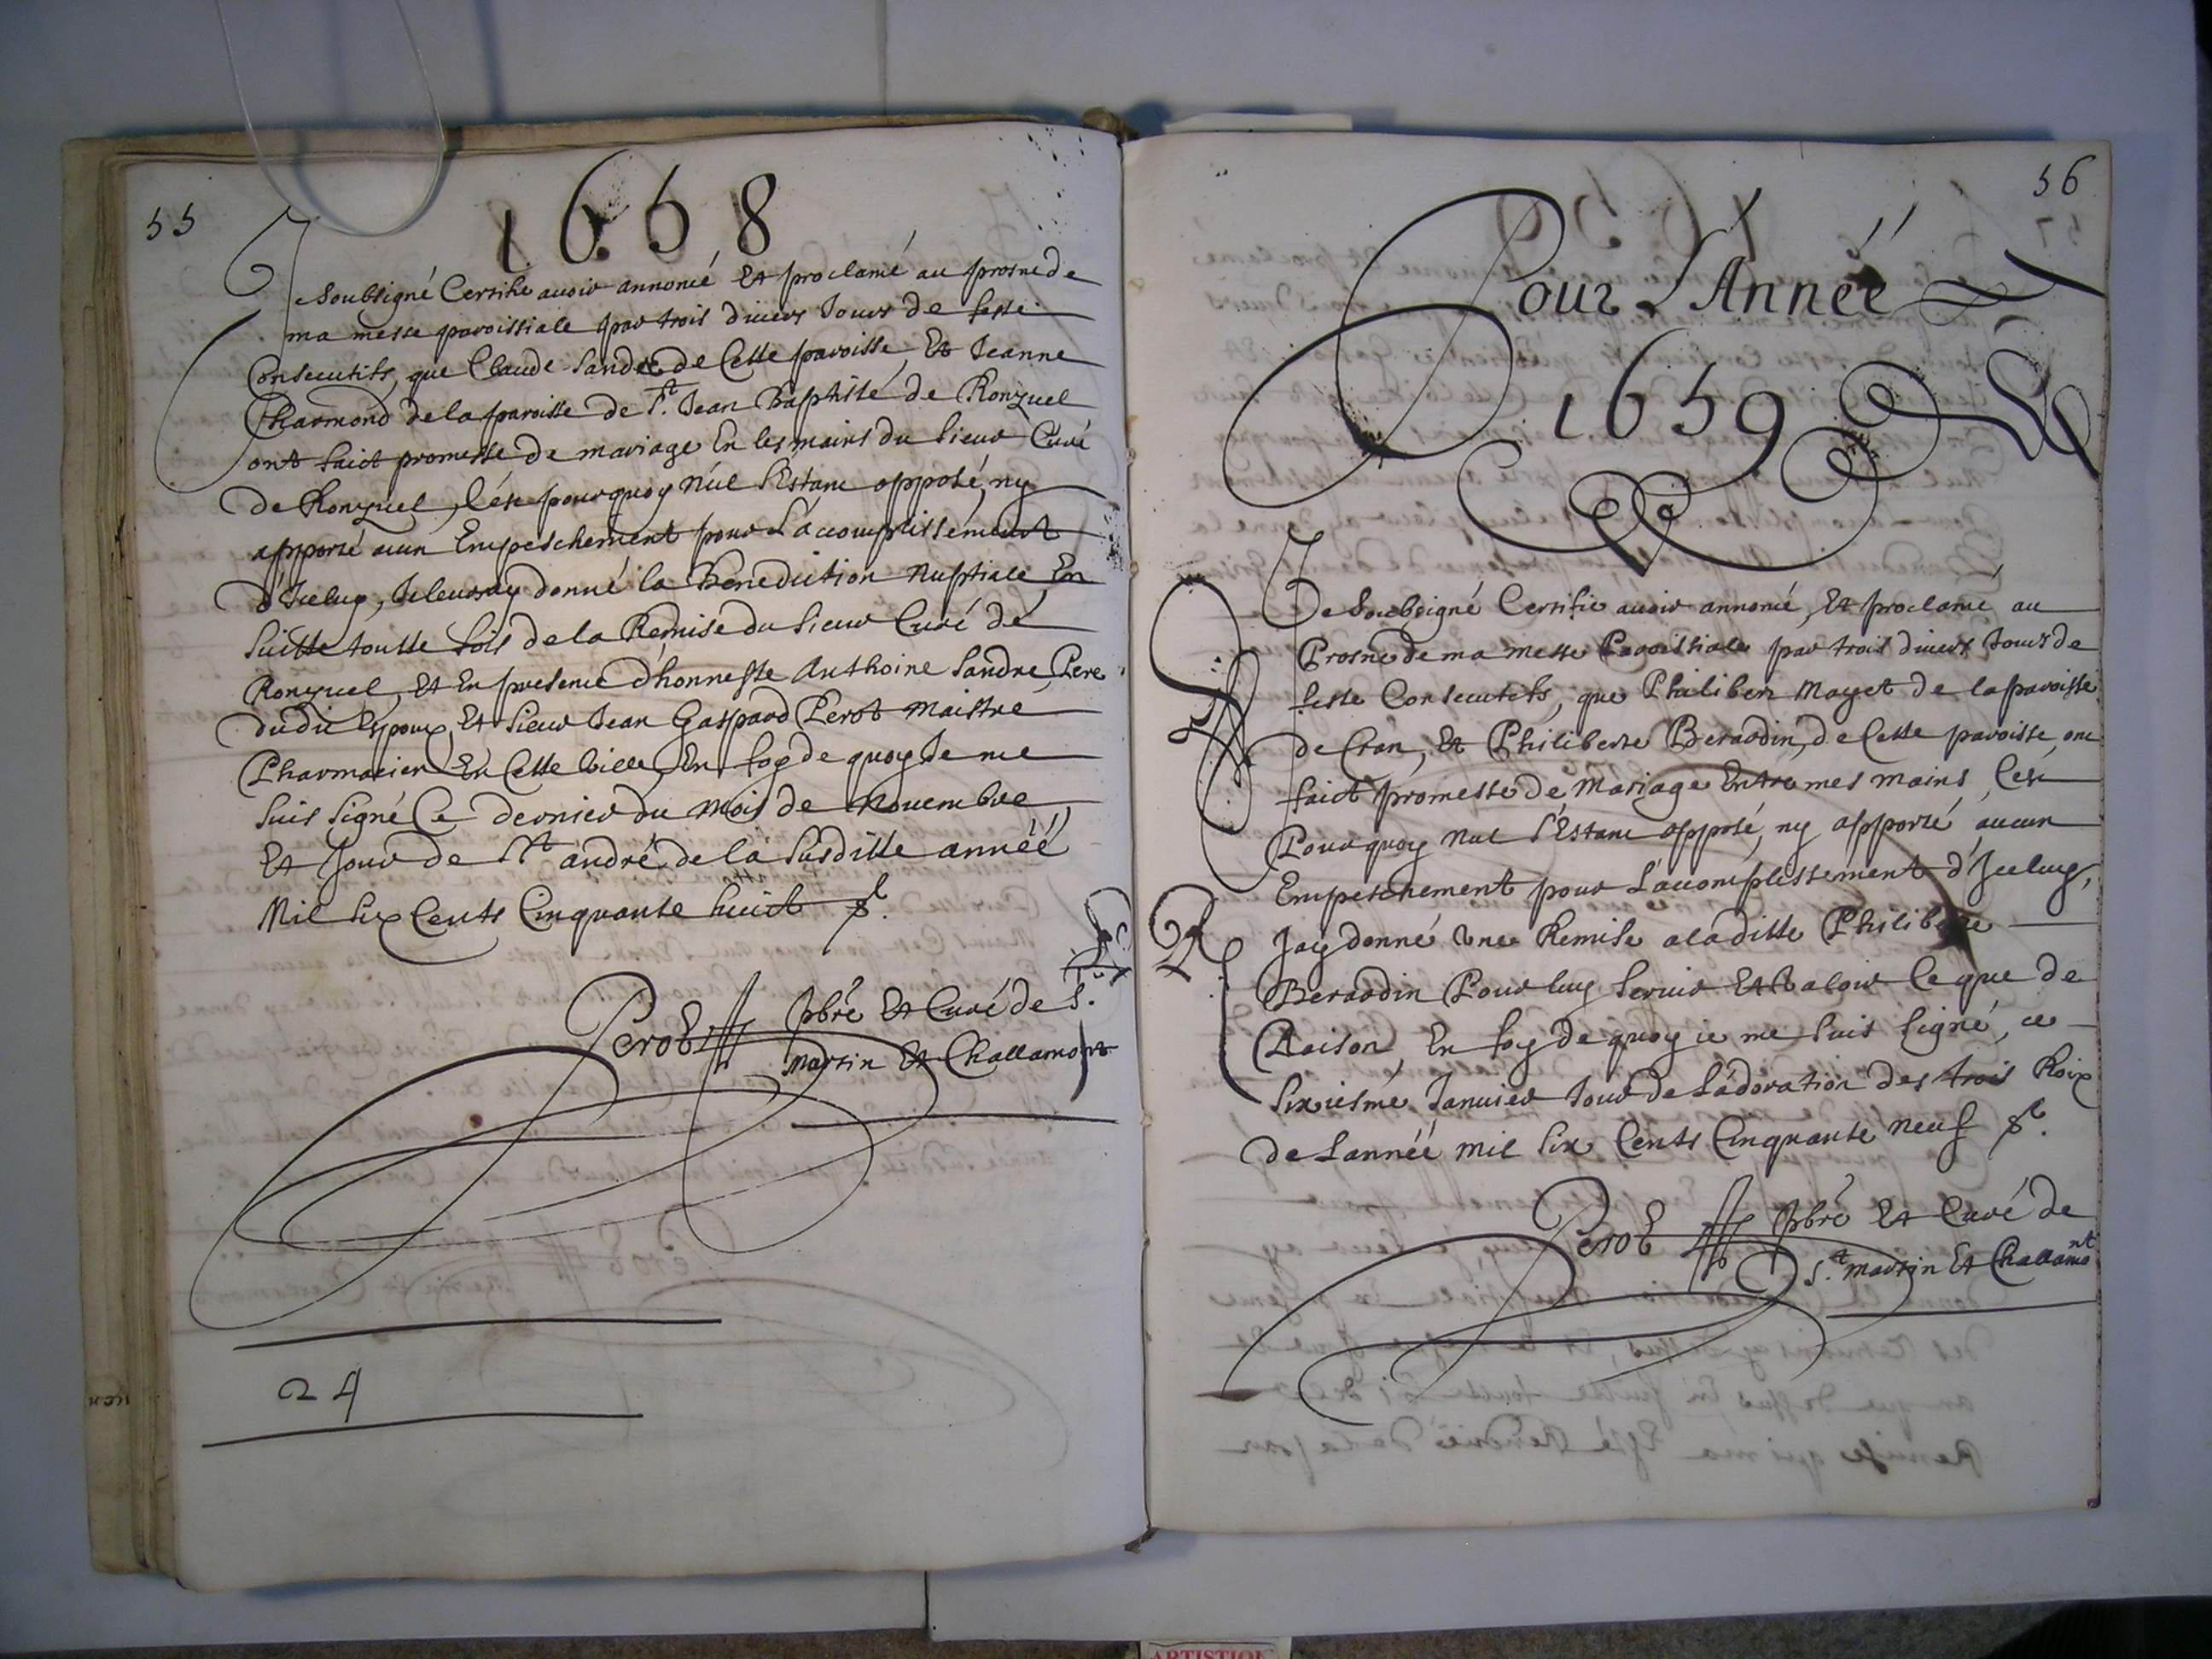 55
1658
Je Soubsigné Certifie auoir annoncé Et proclamé au prosne de
ma messe paroissiale par trois diuers Jours de feste
Consecutifs, que Claude Sandre de Cette paroisse, Et Jeanne
Charmond de la paroisse de St. Jean Baptiste de Ronzuel
ont faict promesse de mariage En les mains du Sieur Curé
de Ronzuel, C'ést pourquoy Nul S'Estant opposé, ny
apporté aucun Empeschement pour L'accomplissement
d'Iceluy, Je leur ay donné la Benediction Nuptiale En
Suitte toutte fois de la Remise du Sieur Curé de
Ronzuel, Et En presence d'honneste Anthoine Sandre Pere
du dit Espoux, Et Sieur Jean Gaspard Perot Maistre
Pharmacien En Cette Ville, En foy de quoy Je me
Suis Signé Ce dernier du Mois de Nouembre
Et Jour de St. André de la Susditte année
Mil Six Cents Cinquante huict
Perot Pbre Et Curé de St.
Martin Et Challamont
24
56
Pour L'Année
1659
Je Soubsigné Certifie auoir annoncé, Et proclamé au
Prosne de ma Messe Paroissiale par trois diuers Jours de
feste Consecutifs, que Philibert Mayet de la paroisse
de Cran, Et Philiberte Berardin, de Cette paroisse, ont
faict promesse de Mariage Entre mes mains, C'ést
Pourquoy Nul S'Estant opposé, ny apporté aucun
Empeschement pour L'accomplissement d'Iceluy,
J'ay donné Vne Remise a laditte Philiberte
Berardin Pour luy Seruir Et Valoir Ce que de
Raison, En foy de quoy ie me Suis Signé, ce
Sixiesme Januier Jour de L'adoration des trois Roix
de L'année Mil Six Cents Cinquante Neuf
Perot Pbre Et Curé de
St. Martin Et Challamont